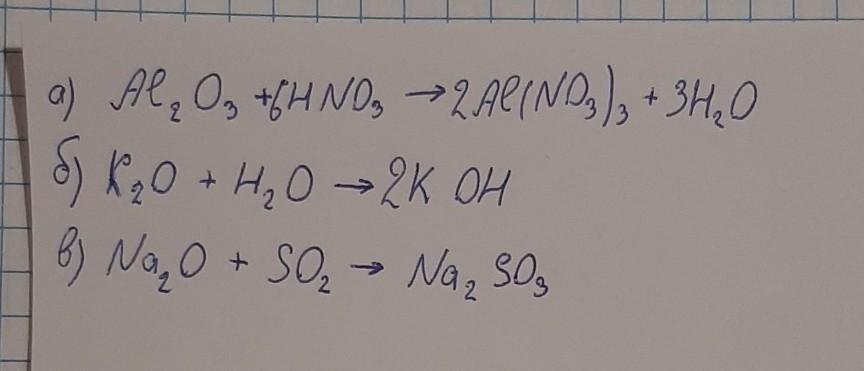 а) Al₂O₃ + 6HNO₃ → 2Al(NO₃)₃ + 3H₂O
б) K₂O + H₂O → 2K OH
в) Na₂O + SO₂ → Na₂SO₃